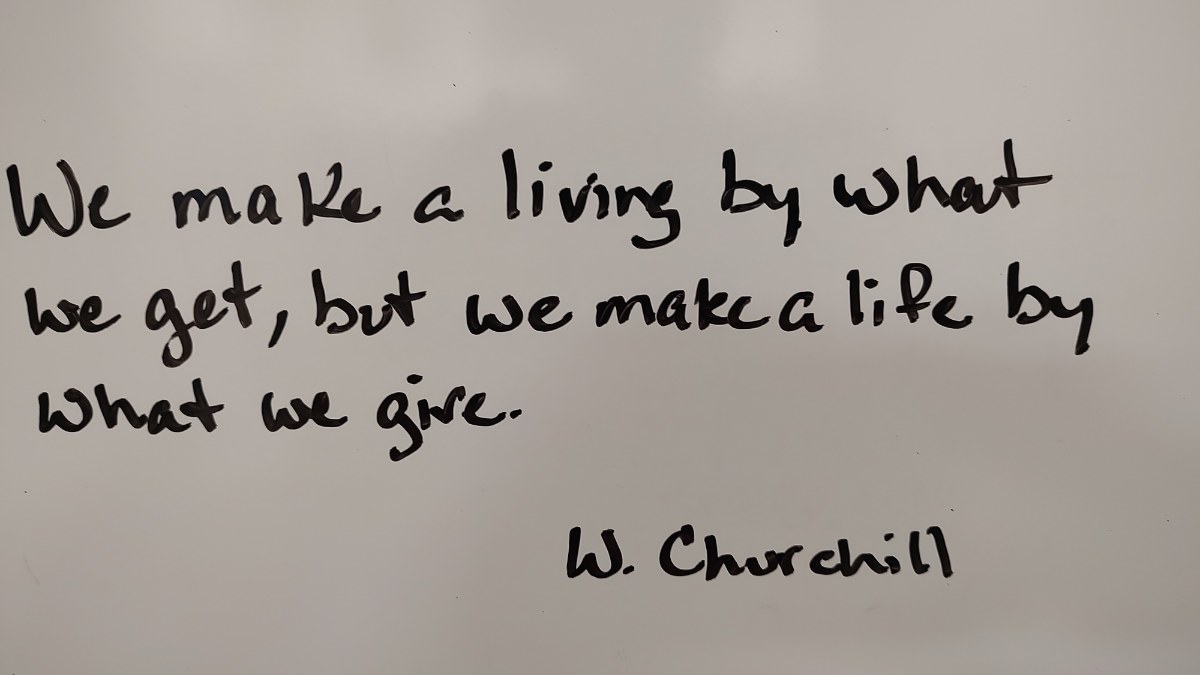 We make a living by what
we get, but we make a life by
what we give.
W. Churchill